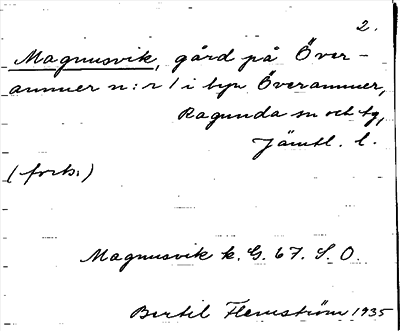 2.
Magnusvik, gård på Över-
ammer n:r 1 i byn Överammer,
Ragunda sn och tg,
Jämtl. l.
(forts.)
Magnusvik k. G. 67. S. O.
Bertil Flemström 1935